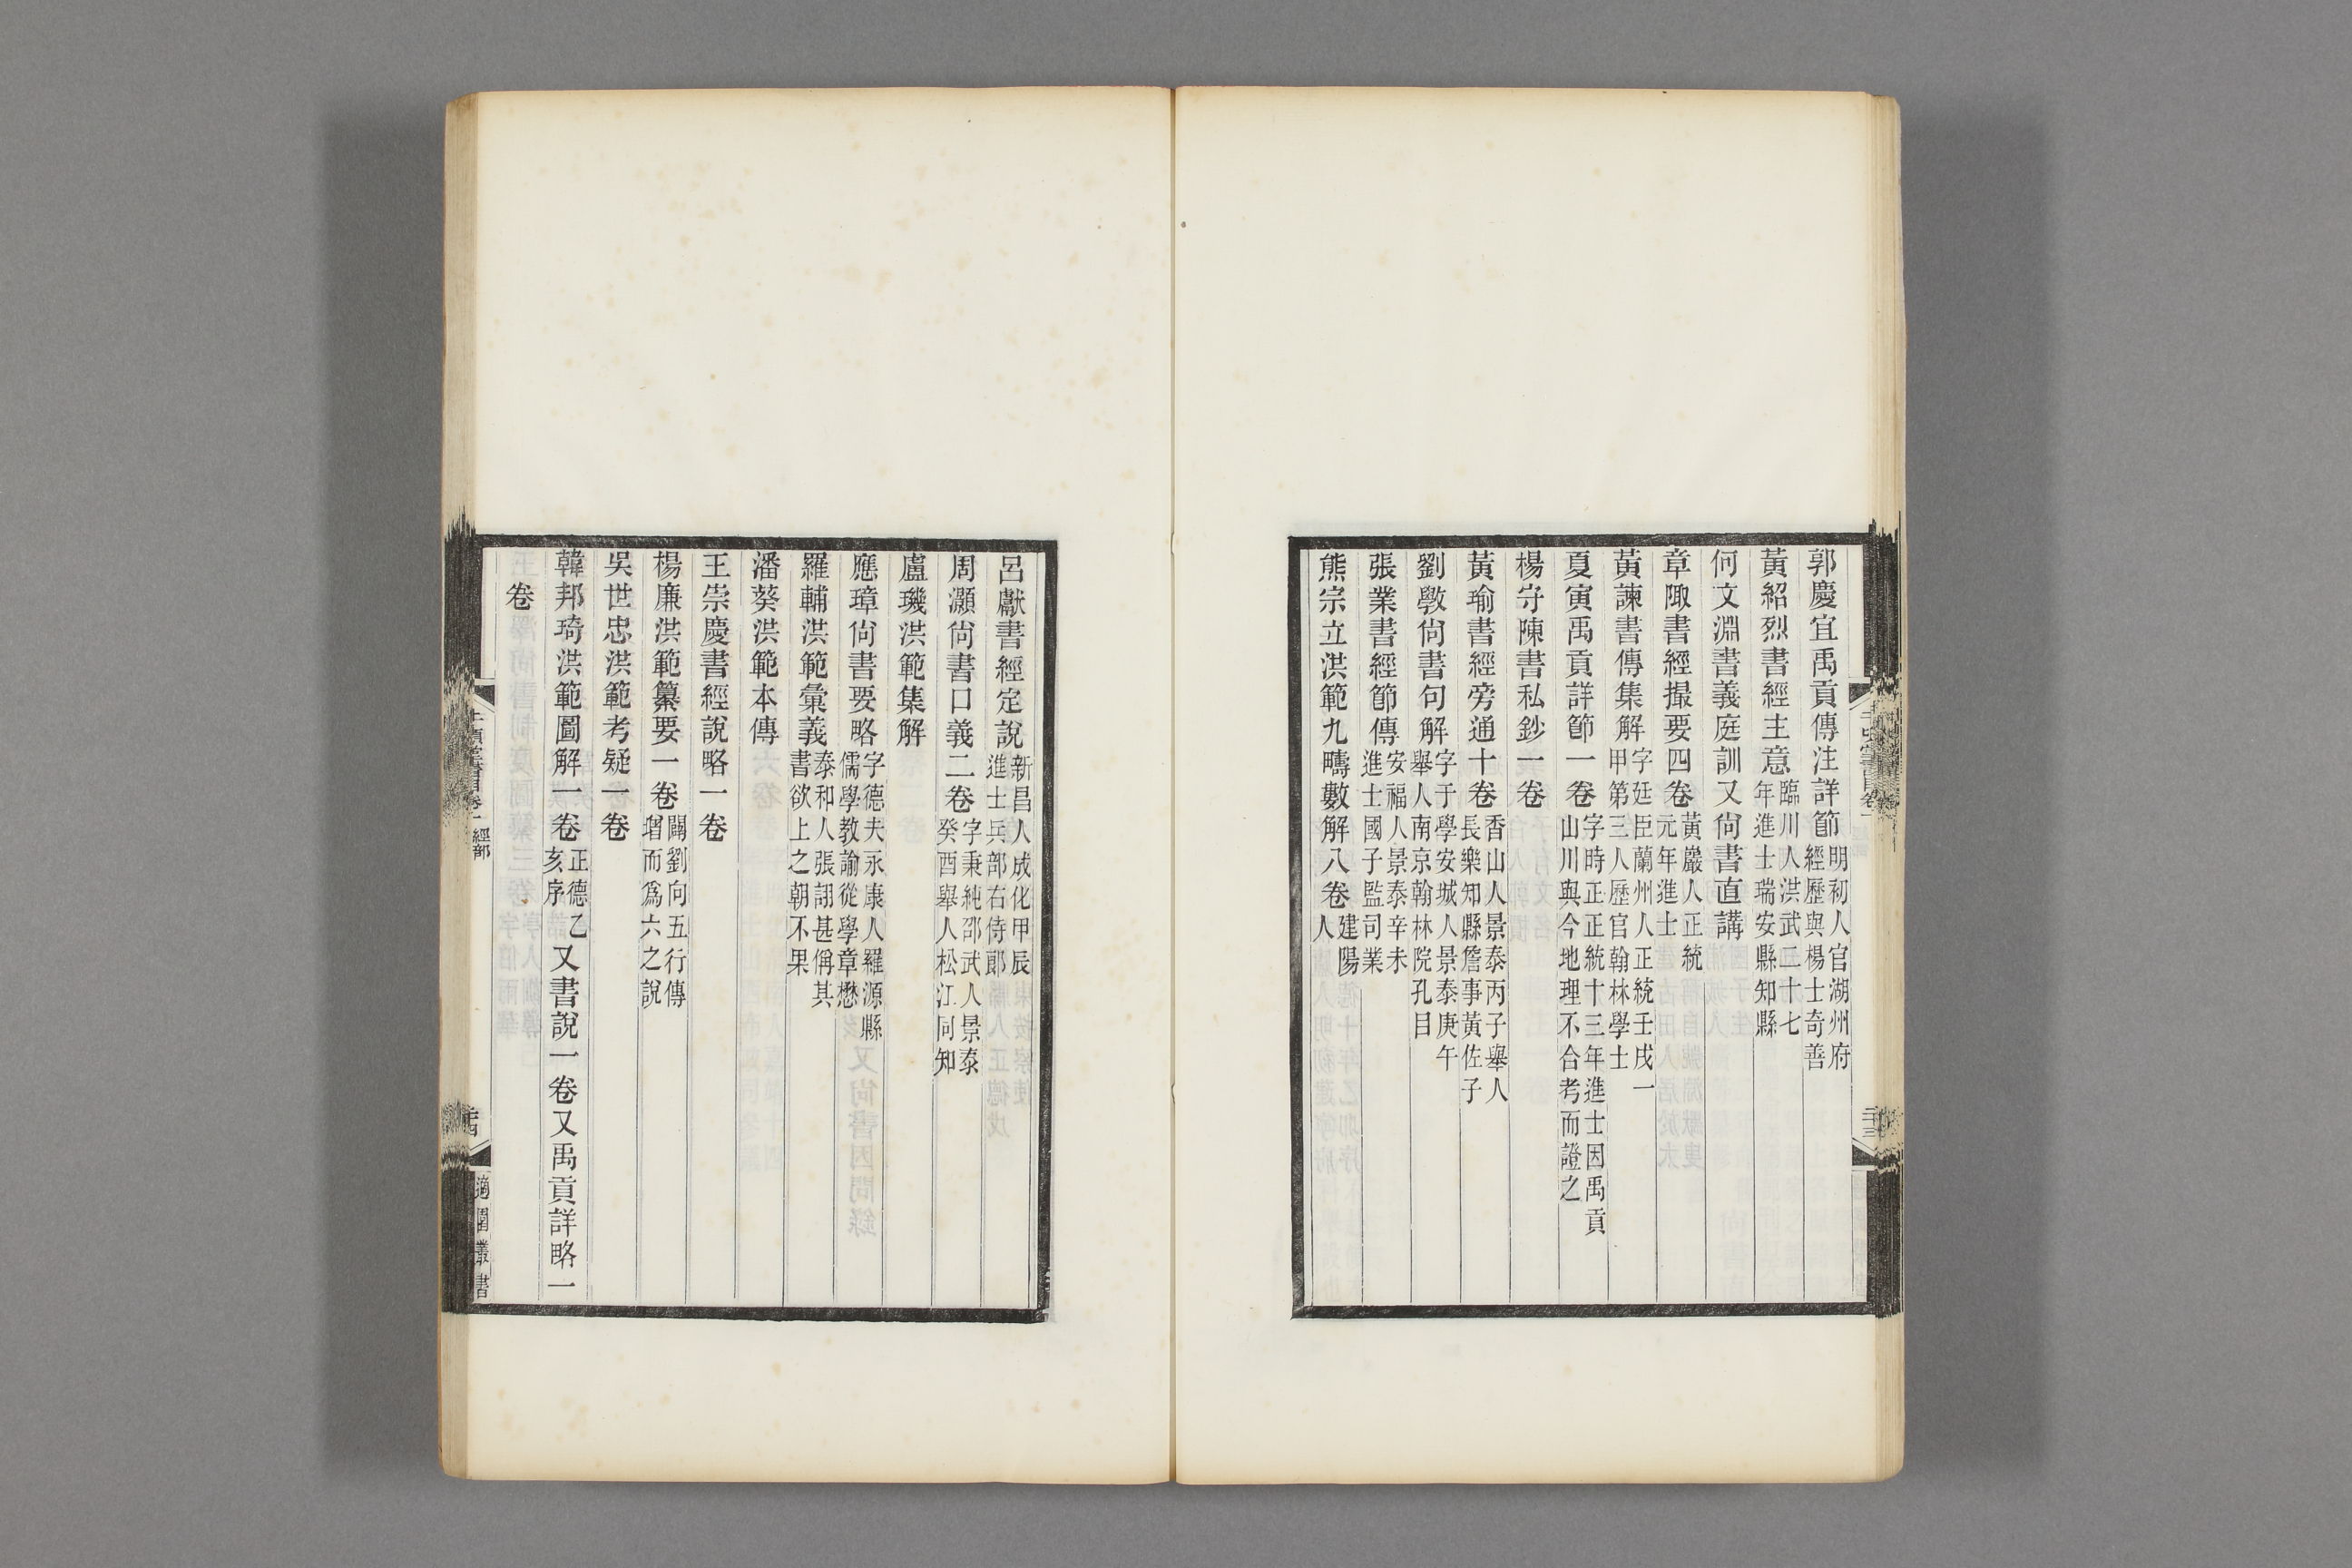 郭慶宜禹貢傳注詳節明初人官湖州府經歷與楊士奇善
黃紹烈書經主意臨川人洪武二十七年進士瑞安縣知縣
何文淵書義庭訓又尙書直講
章陬書經撮要四卷黃巖人正統元年進士
黃諫書傳集解字廷臣蘭州人正統壬戌一甲第三人歷官翰林學士
夏寅禹貢詳節一卷字時正正統十三年進士因禹貢山川與今地理不合考而證之
楊守陳書私鈔一卷
黃瑜書經旁通十卷香山人景泰丙子舉人長樂知縣詹事黃佐子
劉斆尙書句解字于學安城人景泰庚午舉人南京翰林院孔目
張業書經節傳安福人景泰辛未進士國子監司業
熊宗立洪範九疇數解八卷建陽人
呂獻書經定說新昌人成化甲辰進士兵部右侍郞
周灝尙書口義二卷字秉純邵武人景泰癸酉舉人松江同知
盧璣洪範集解
應璋尙書要略字德夫永康人羅源縣儒學教諭從學章懋
羅輔洪範彙義泰和人張詡甚偁其書欲上之朝不果
潘葵洪範本傳
王崇慶書經說略一卷
楊廉洪範纂要一卷闢劉向五行傳增而爲六之說
吳世忠洪範考疑一卷
韓邦琦洪範圖解一卷正德乙亥序又書說一卷又禹貢詳略一
卷
千頃堂書目卷一 經部
二十四
適園叢書